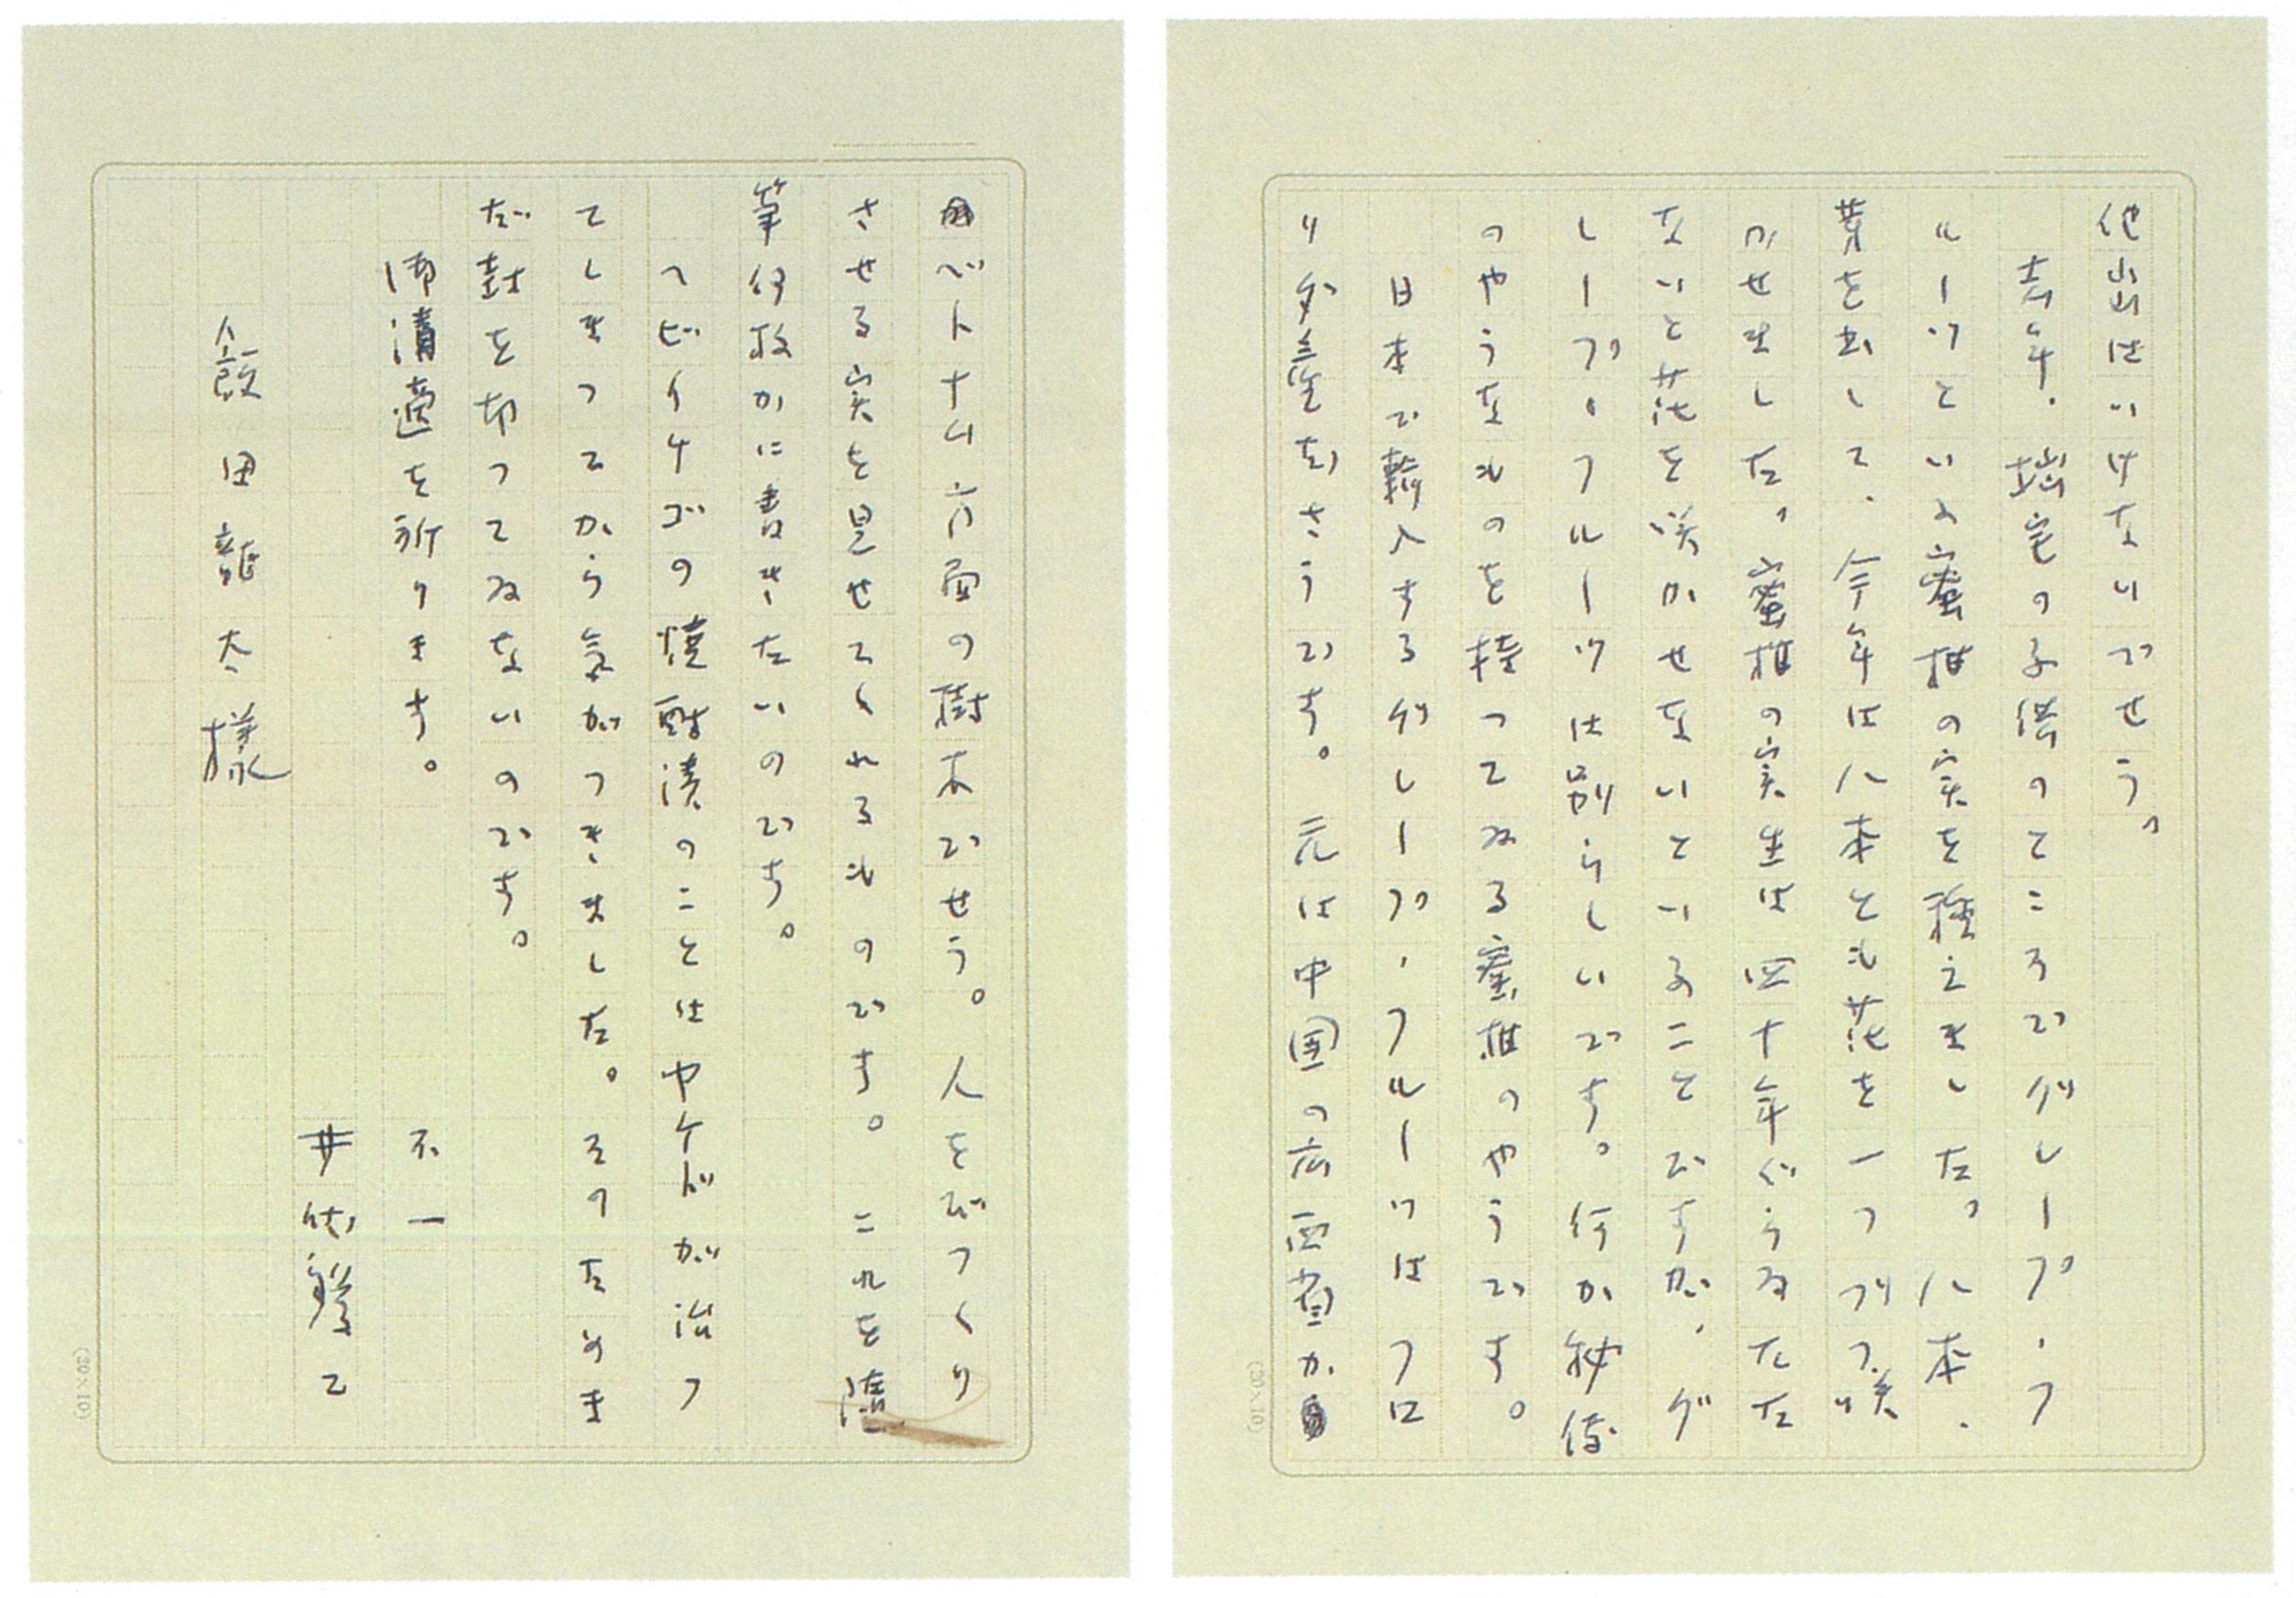 他出はいけないでせう。
去年、拙宅の子供のところでグレープ・フ
ルーツといふ蜜柑の実を種えました。八本、
芽を出して、今年は八本とも花を一つづつ咲
かせました。蜜柑の実生は四十年ぐらゐたた
ないと花を咲かせないといふことですが、グ
レープ・フルーツは別らしいです。何か秘伝
のやうなものを持つてゐる蜜柑のやうです。
日本で輸入するグレープ・フルーツはフロ
リダ産ださうです。元は中国の広西省か
ベトナム方面の樹木でせう。人をびつくり
させる実を見せてくれるものです。これを随
筆何枚かに書きたいのです。
ヘビイチゴの焼酎漬のことはヤケドが治つ
てしまつてから気がつきました。そのためま
だ封を切つてゐないのです。
御清適を祈ります。
不一
井伏鱒二
飯田龍太様
(20×10)
(20×10)